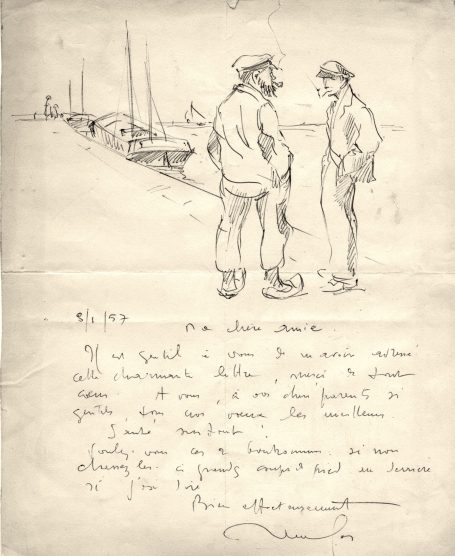 3/1/57
Ma chère amie.
Il est gentil à vous de m'avoir adressé
cette charmante lettre, merci de tout
cœur. A vous, à vos chers parents si
gentils, tous nos vœux les meilleurs.
Santé surtout !
Voulez vous ces 2 bonshommes. si non
chassez les à grands coups d pied au derrière
si j'ose dire
Bien affectueusement